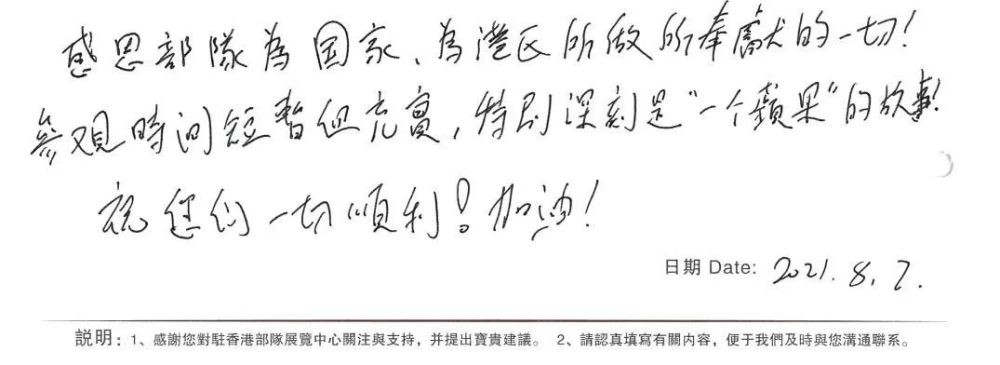 感恩部隊為国家、為港民所做所奉獻的一切！
參观時间短暫但充實，特别深刻是“一个蘋果”的故事！
祝您们一切順利！加油！
日期 Date: 2021.8.7.
説明：1、感謝您對駐香港部隊展覽中心關注與支持，并提出寶貴建議。 2、請認真填寫有關内容，便于我們及時與您溝通聯系。